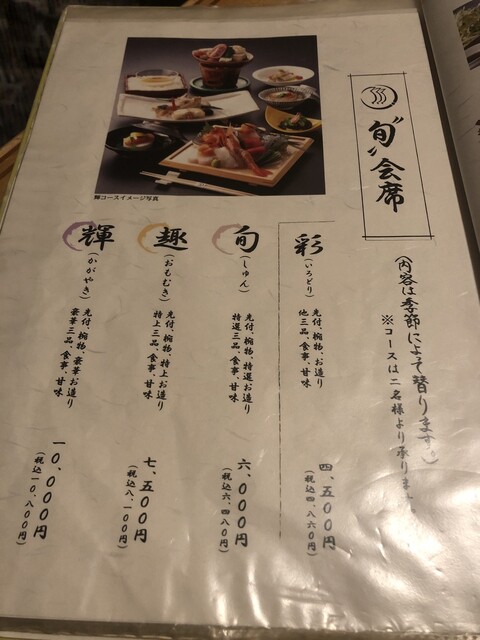 "旬"会席
(内容は季節によって替ります。)
※コースは二名様より承ります
彩
(いろどり)
先付、椀物、お造り
他三品、食事、甘味
四、五〇〇円
(税込四、八六〇円)
旬
(しゅん)
先付、椀物、特選お造り
特選三品、食事、甘味
六、〇〇〇円
(税込六、四八〇円)
趣
(おもむき)
先付、椀物、特上お造り
特上三品、食事、甘味
七、五〇〇円
(税込八、一〇〇円)
輝
(かがやき)
先付、椀物、豪華お造り
豪華三品、食事、甘味
一〇、〇〇〇円
(税込一〇、八〇〇円)
輝コースイメージ写真